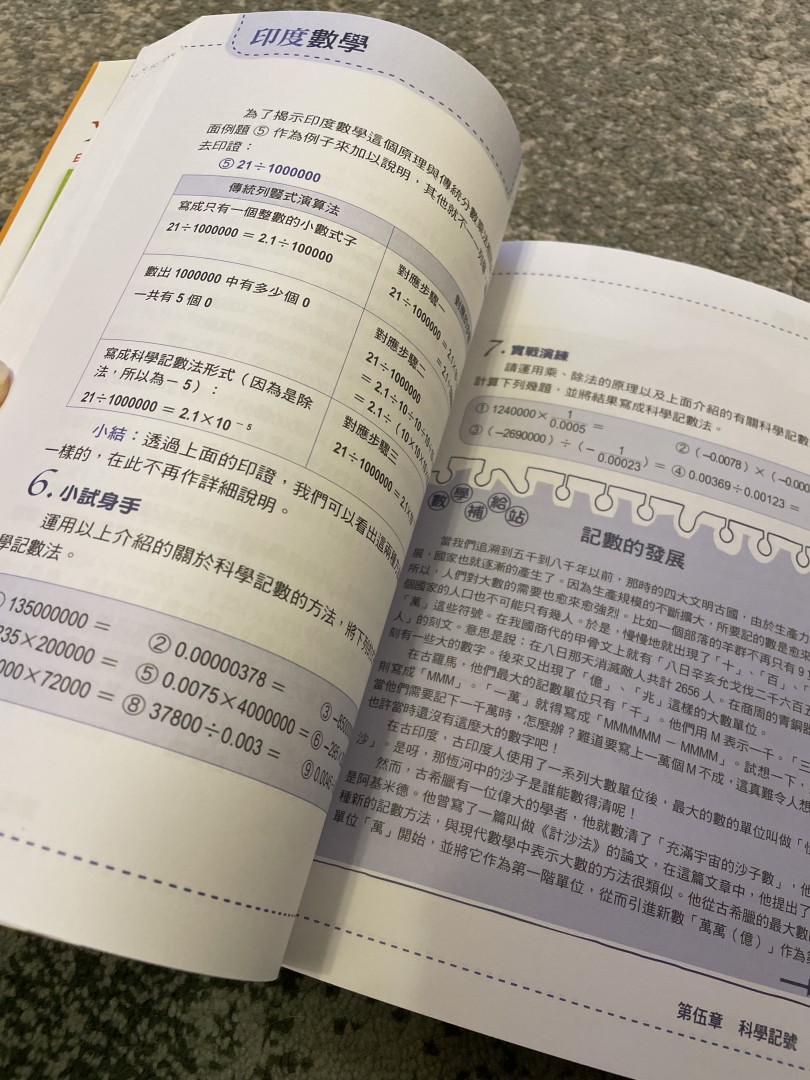 印度數學
為了揭示印度數學這個原理與傳統分數乘法
面例題 ⑤ 作為例子來加以說明，其他就不一一列
去印證：
⑤ 21÷1000000
傳統列豎式演算法
寫成只有一個整數的小數式子
21÷1000000 ＝ 2.1÷100000
對應步驟一
21÷1000000 ＝ 2.1
數出 1000000 中有多少個 0
一共有 5 個 0
對應步驟二
21÷1000000
＝ 2.1÷10÷10÷10
＝ 2.1÷（10×10×
寫成科學記數法形式（因為是除
法，所以為－ 5）：
21÷1000000 ＝ 2.1×10 ⁻⁵
對應步驟三
21÷1000000 ＝ 2.1
小結：透過上面的印證，我們可以看出這兩種
一樣的，在此不再作詳細說明。
6. 小試身手
運用以上介紹的關於科學記數的方法，將下列
學記數法。
135000000 ＝
② 0.00000378 ＝
235×200000 ＝
⑤ 0.0075×4000000 ＝
000×72000 ＝
⑧ 37800÷0.003 ＝
7. 實戰演練
請運用乘、除法的原理以及上面介紹的有關科學記數
計算下列幾題，並將結果寫成科學記數法。
① 1240000× 1/0.0005 ＝
②（−0.0078）×（−0.000
③（−2690000）÷（− 1/0.00023）＝
④ 0.00369÷0.00123 ＝
數學補給站
記數的發展
當我們追溯到五千到八千年以前，那時的四大文明古國，由於生產力
展，國家也就逐漸的產生了。因為生產規模的不斷擴大，所要記的數是愈來
所以，人們對大數的需要也愈來愈強烈。比如一個部落的羊群不再只有 9
個國家的人口也不可能只有幾人。於是，慢慢地就出現了「十」、「百」、
「萬」這些符號。在我國商代的甲骨文上就有「八日辛亥允戈伐二千六百五
人」的刻文。意思是說：在八日那天消滅敵人共計 2656 人。在商周的青銅器
刻有一些大的數字。後來又出現了「億」、「兆」這樣的大數單位。
在古羅馬，他們最大的記數單位只有「千」。他們用 M 表示一千。「三
則寫成「MMM」。「一萬」就得寫成「MMMMMM － MMMM」。試想一下，
當他們需要記下一千萬時，怎麼辦？難道要寫上一萬個 M 不成，這真難令人想
也許當時還沒有這麼大的數字吧！
在古印度，古印度人使用了一系列大數單位後，最大的數的單位叫做「恆
沙」。是呀，那恆河中的沙子是誰能數得清呢！
然而，古希臘有一位偉大的學者，他就數清了「充滿宇宙的沙子數」，他
是阿基米德。他曾寫了一篇叫做《計沙法》的論文，在這篇文章中，他提出了
種新的記數方法，與現代數學中表示大數的方法很類似。他從古希臘的最大數
單位「萬」開始，並將它作為第一階單位，從而引進新數「萬萬（億）」作為
第伍章　科學記號